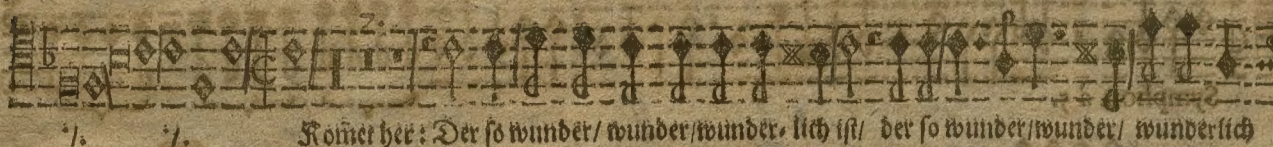 2.
·/. ·/. Kom̃et her: Der so wunder/ wunder/wunder- lich ist/ der so wunder/wunder/ wunderlich